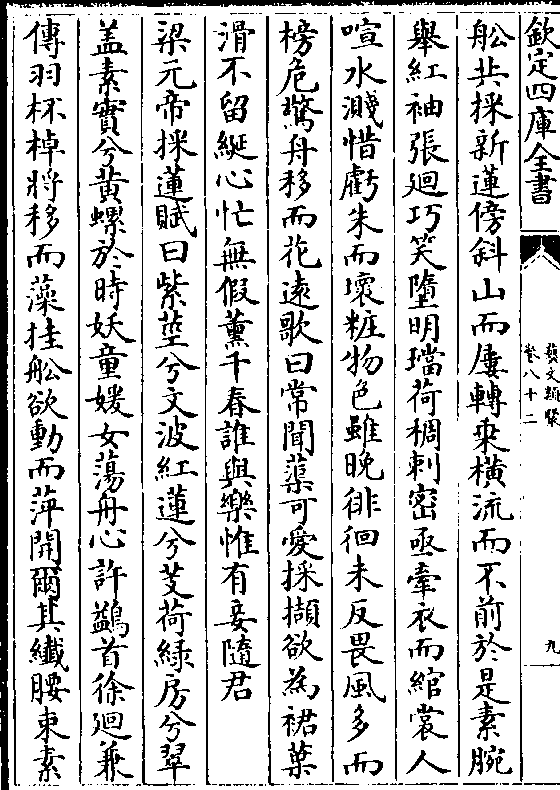 欽定四庫全書
藝文類聚
卷八十二
九
舩共採新蓮傍斜山而屢轉乗橫流而不前於是素腕
舉紅袖張廻巧笑墮明璫荷稠刺密亟牽衣而綰裳人
喧水濺惜虧朱而壞粧物色雖晚徘徊未反畏風多而
榜危驚舟移而花逺歌曰常聞蕖可愛採擷欲為裙葉
滑不留綖心忙無假薫千春誰與樂惟有妾隨君
梁元帝採蓮賦曰紫莖兮文波紅蓮兮芰荷緑房兮翠
盖素實兮黄螺於時妖童媛女蕩舟心許鷁首徐廻兼
傳羽杯棹將移而藻挂舩欲動而萍開爾其纎腰束素